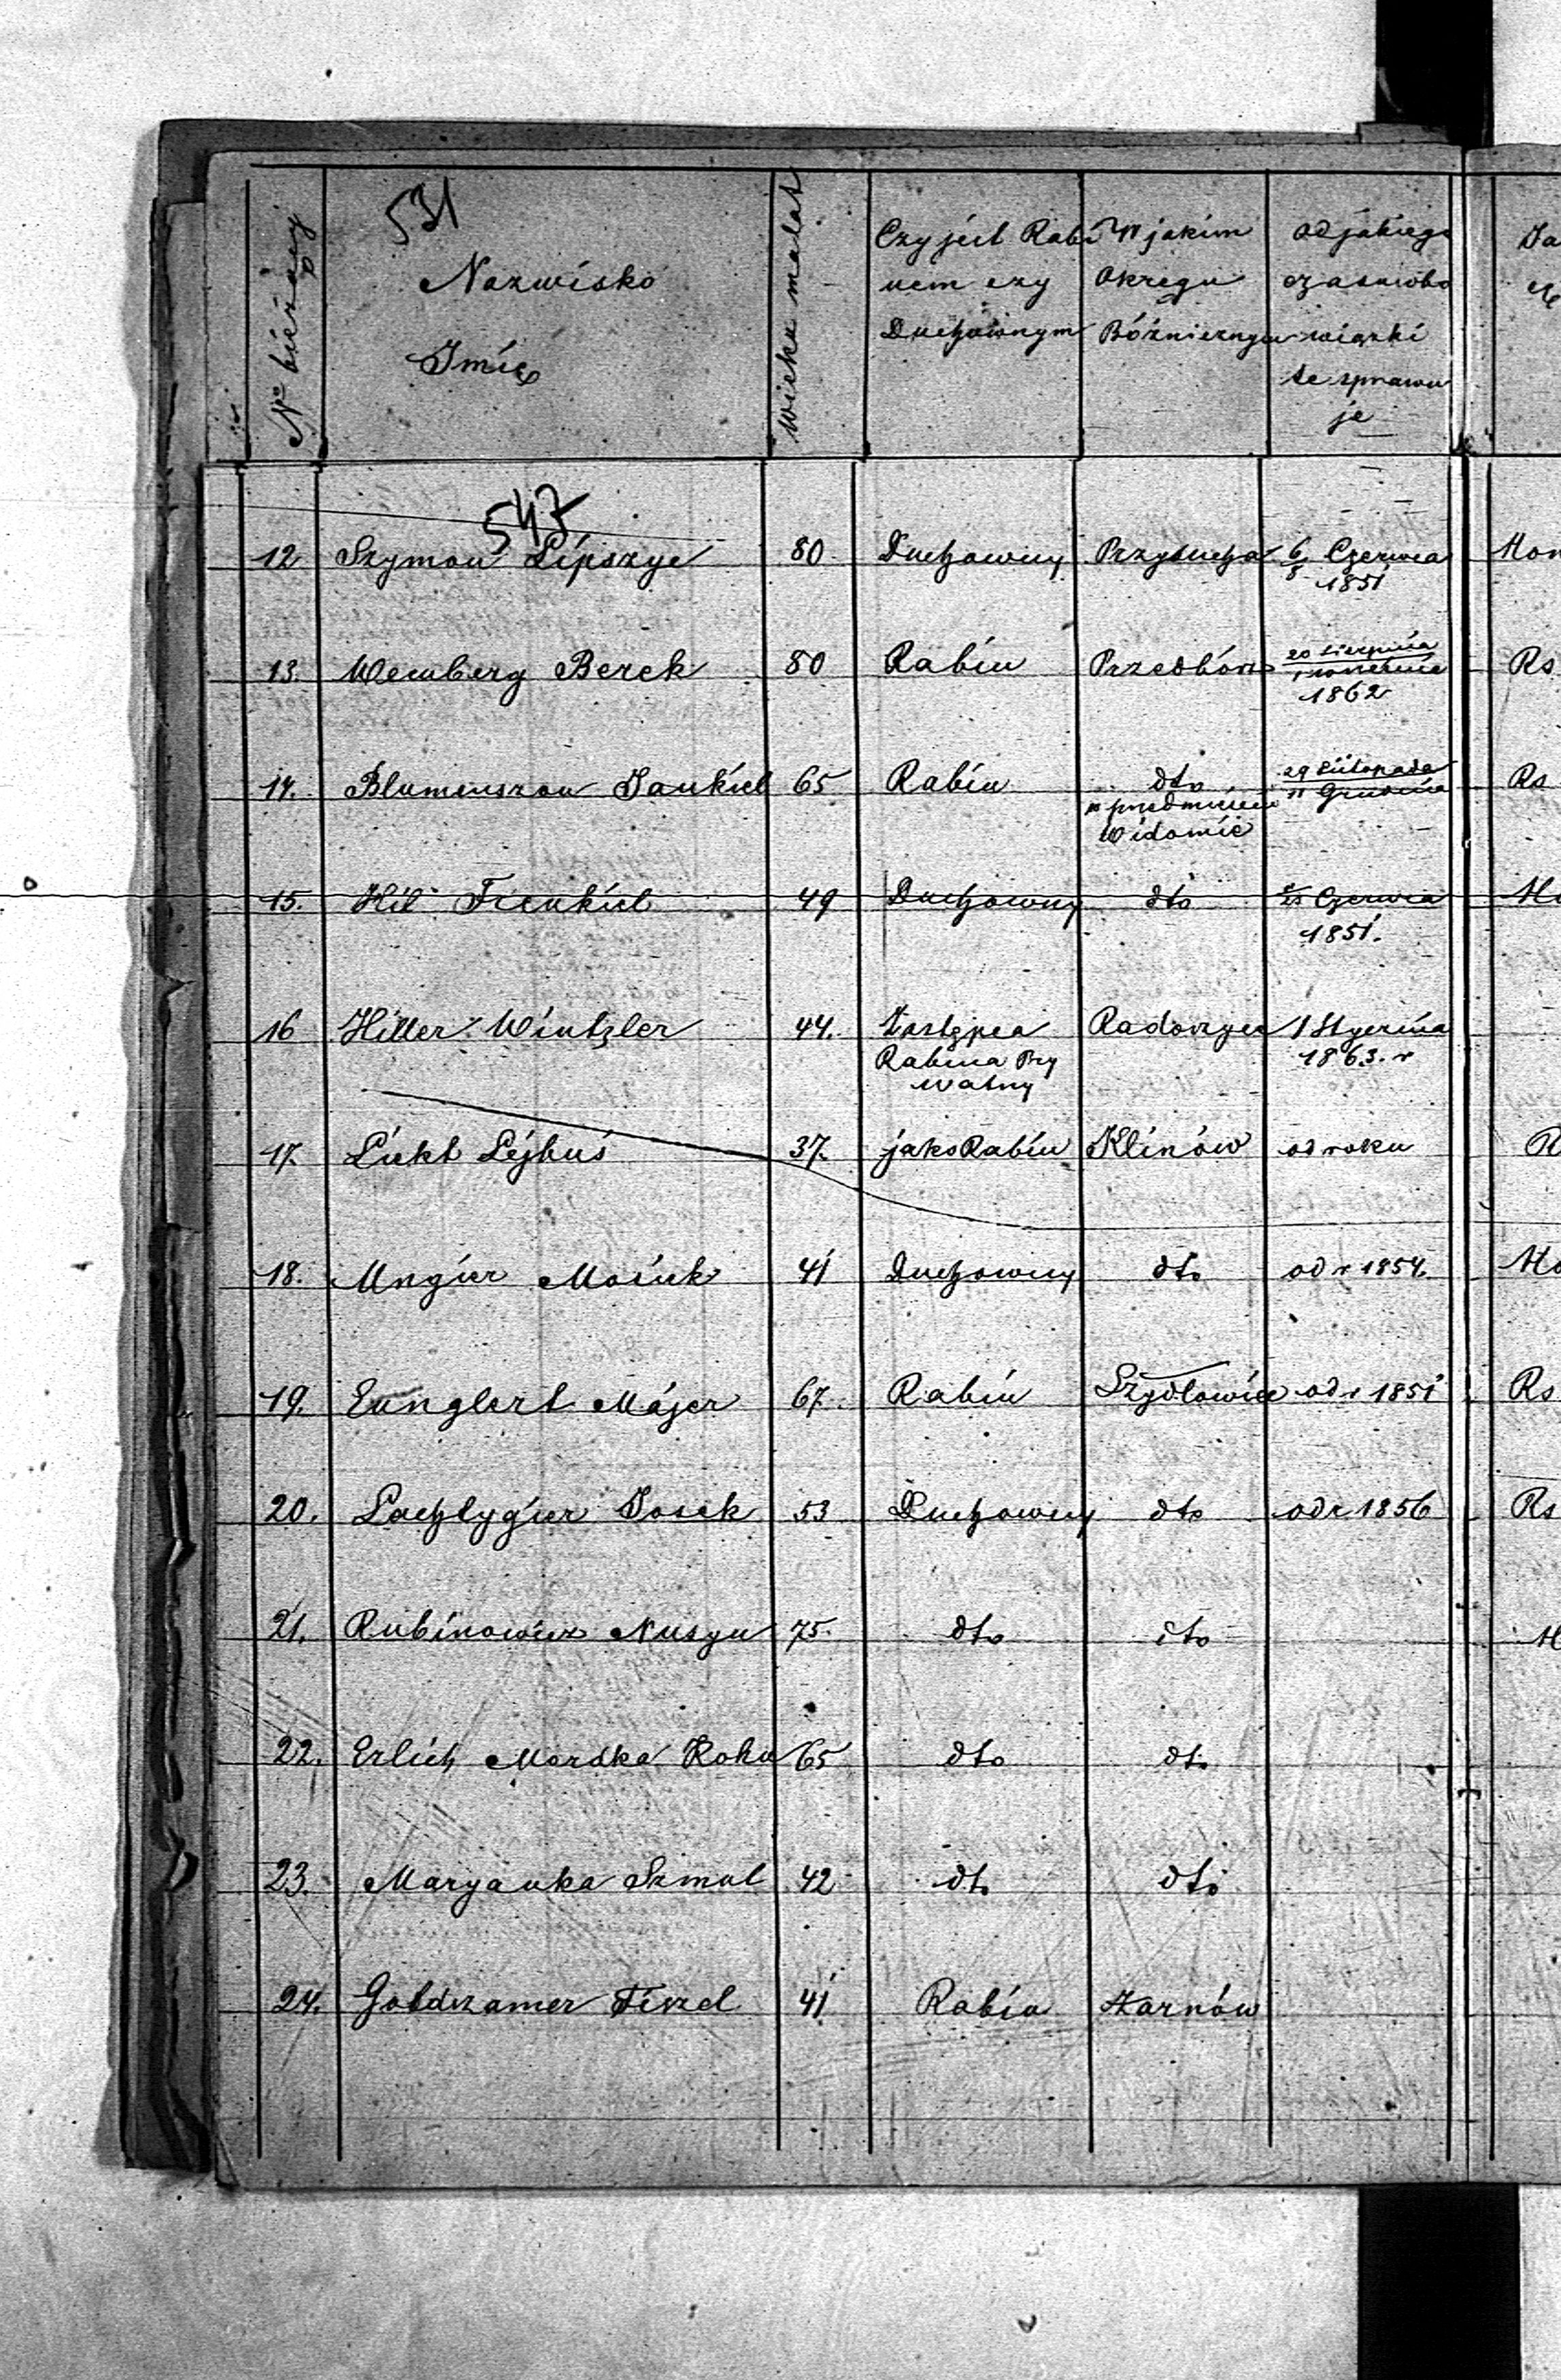 531
Nº bieżący
Nazwisko
Imię
Wieku ma lat
Czy jest Rabi
nem czy
Duchownym
W jakim
Okręgu
Bóżniczym
od jakiego
czasu obo
wiązki
te sprawu
je
547
12 Szymon Lipszyc 80 Duchowny Przysucha 6/8 Czerwca
1851
13. Weinberg Berek 80 Rabin Przedbórz 20 Sierpnia
1 września
1862
14. Blumenszon Jankiel 65 Rabin dto 29 Listopada
11 Grudnia
w przedmieściu
Widomie
15. Hil Frenkiel 49 Duchowny dto Czerwca
1851.
16 Hiller Wintzler 44. Zastępca Radoszyce 1 Stycznia
Rabina Pry 1863. r
watny
17. Lickt Lejbuś 37. jako Rabin Klinów od roku
18. Ungier Mosiek 41 Duchowny dto od r 1854.
19. Eunglert Májer 67. Rabin Szydłowiec od r 1851
20. Lachtygier Josek 53 Duchowny dto od r 1856
21. Rubinowicz Nusyn 75. dto dto
22. Erlich Mordka Kohn 65 dto dto
23. Maryanka Szmul 42 dto dto
24. Goldszamer Fiszel 41 Rabin Żarnów
Rs
Rs
Rs
Rs